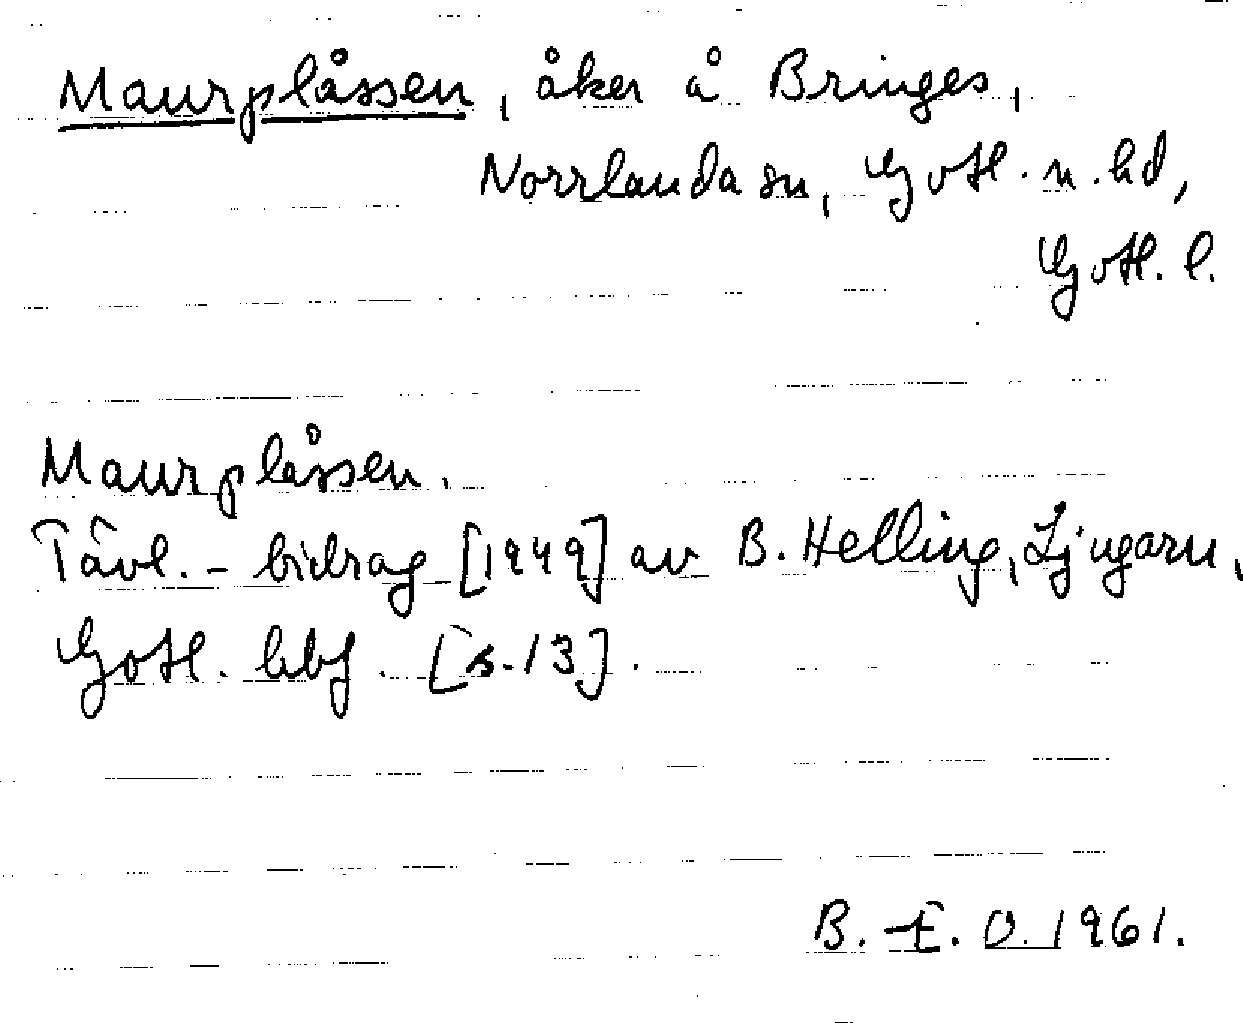 Maurplåssen, åker å Bringes,
Norrlanda sn, Gotl. n. hd,
Gotl. l.
Maurplåssen.
Tävl.-bidrag [1949] av B. Helling, Ljugarn,
Gotl. hbf. [s. 13].
B.-E. O. 1961.